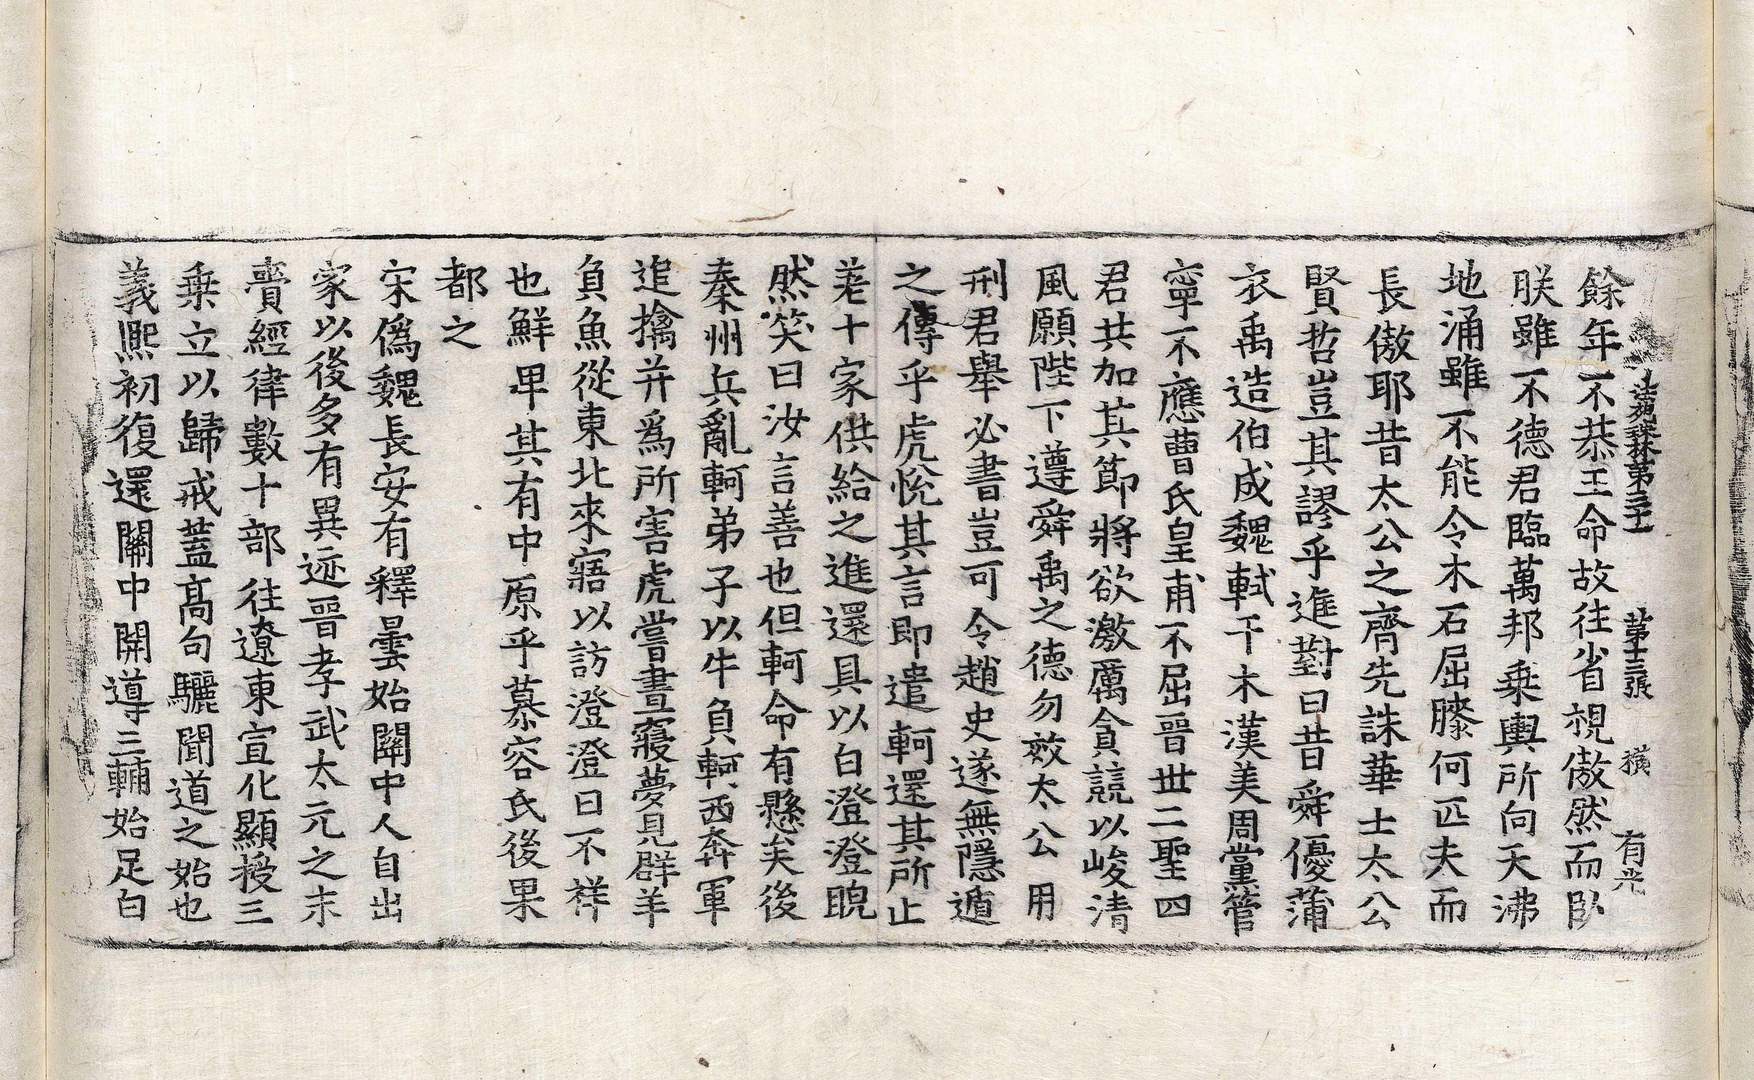 法苑珠林第三十一 第十三張 橫 有光
餘年不恭王命故往省視傲然而臥
朕雖不德君臨萬邦乗輿所向天沸
地涌雖不能令木石屈膝何匹夫而
長傲耶昔太公之齊先誅華士太公
賢哲豈其謬乎進對曰昔舜優蒲
衣禹造伯成魏軾干木漢美周黨管
寧不應曹氏皇甫不屈晉世二聖四
君共加其節將欲激厲貪競以峻清
風願陛下遵舜禹之德勿效太公用
刑君舉必書豈可令趙史遂無隱遁
之傳乎虎悅其言即遣軻還其所止
差十家供給之進還具以白澄澄睨
然笑曰汝言善也但軻命有懸矣後
秦州兵亂軻弟子以牛負軻西奔軍
追擒并爲所害虎嘗晝寢夢見群羊
負魚從東北來寤以訪澄澄曰不祥
也鮮卑其有中原乎慕容氏後果
都之
宋僞魏長安有釋曇始關中人自出
家以後多有異迹晉孝武太元之末
賷經律數十部往遼東宣化顯授三
乗立以歸戒蓋髙句驪聞道之始也
義熙初復還關中開導三輔始足白